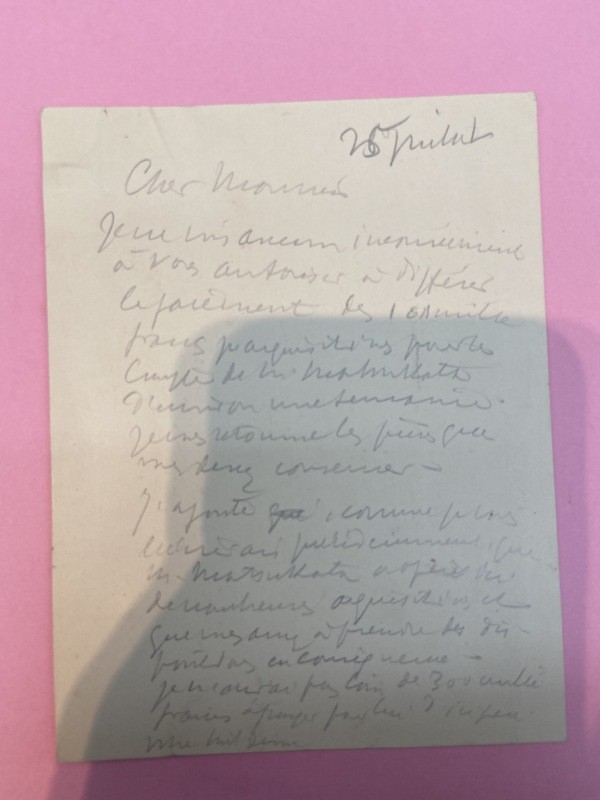 25 Juillet
Cher Monsieur
Je ne vois aucun inconvénient
à vous autoriser à différer
le paiement des 100 mille
francs d'acquisitions pour le
Compte de M. Matsukata
d'environ une semaine.
Je vous retourne les pièces que
vous devez conserver -
J'ajoute que, comme je vous
précédemment, que
M. Matsukata a fait ici
de nombreuses acquisitions, et
que vous avez à prendre des dis-
positions en conséquence -
Je n'aurai pas loin de 300 mille
francs à payer pour lui d'ici peu